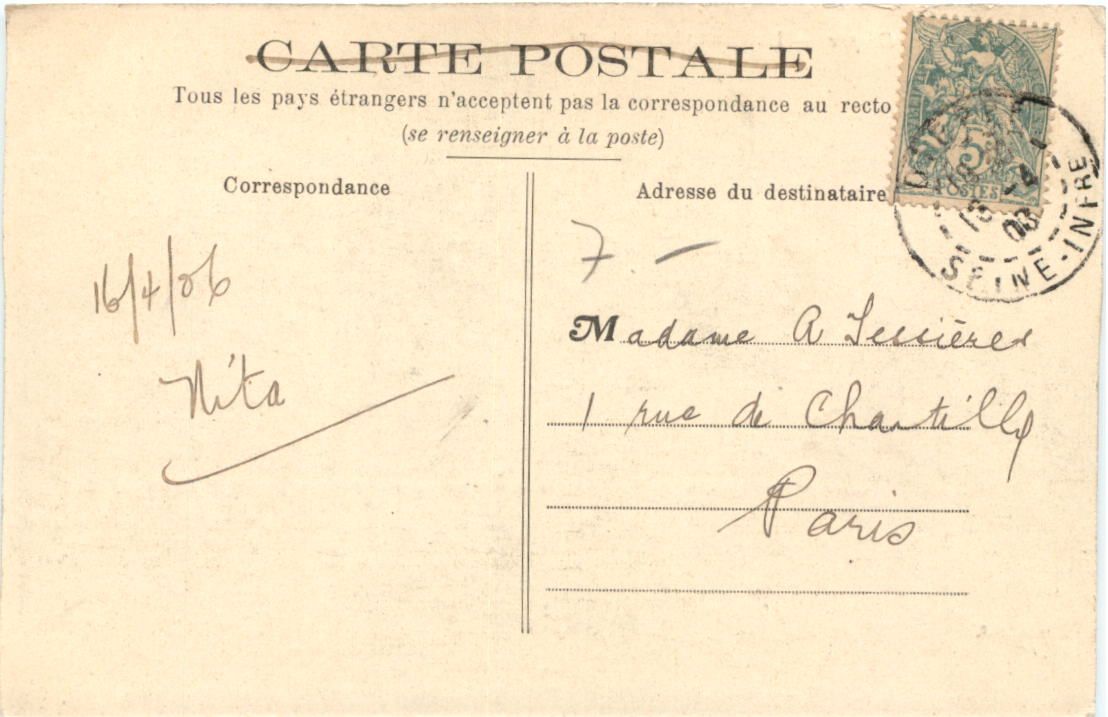 CARTE POSTALE
Tous les pays étrangers n'acceptent pas la correspondance au recto
(se renseigner à la poste)
Correspondance
16/4/06
Nita
Adresse du destinataire
7.—
Madame A Tessières
1 rue de Chantilly
Paris
5
POSTES
SEINE-INFRE